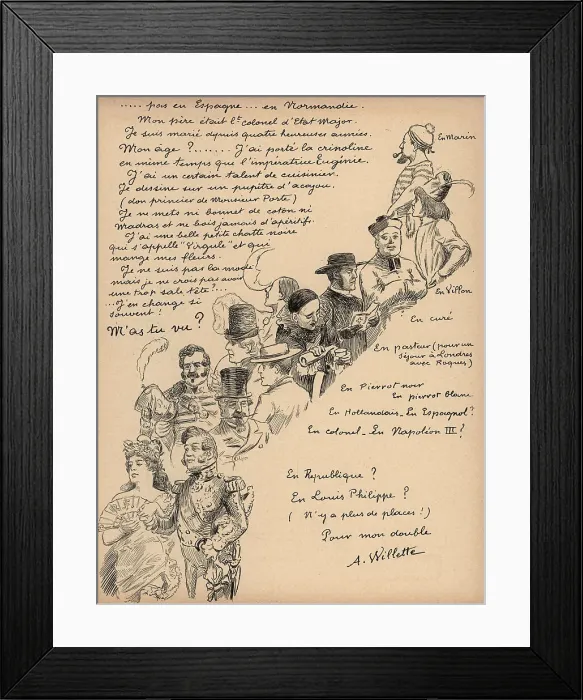 ..... pas en Espagne ... en Normandie.
Mon père était Lt colonel d'Etat Major.
Je suis marié depuis quatre heureuses années.
Mon âge ?....... J'ai porté la crinoline
en même temps que l'impératrice Eugénie.
J'ai un certain talent de cuisinier.
Je dessine sur un pupitre d'acajou.
(don princier de Monsieur Porte)
Je ne mets ni bonnet de coton ni
Madras et ne bois jamais d'apéritifs.
J'ai une belle petite chatte noire
qui s'appelle "Virgule" et qui
mange mes fleurs.
Je ne suis pas la mode
mais je ne crois pas avoir
une trop sale tête ?...
...J'en change si
souvent !
M'as tu vu ?
En Marin
En Villon
En curé
En pasteur (pour un
séjour à Londres
avec Roques)
En Pierrot noir
En pierrot blanc
En Hollandais - En Espagnol ?
En colonel - En Napoléon III ?
En République ?
En Louis Philippe ?
( N'y a plus de places !)
Pour mon double
A. Willette